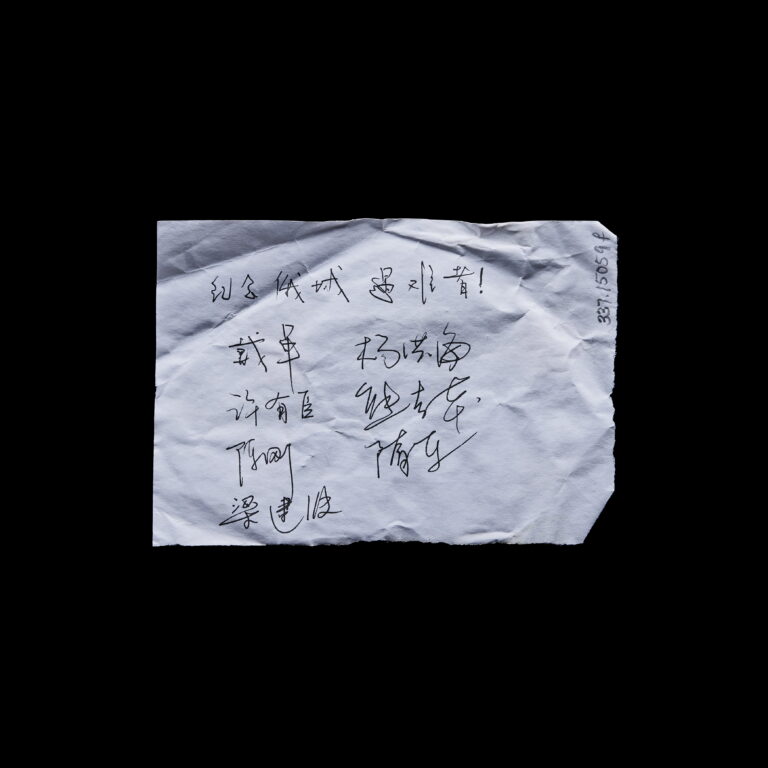 纪念俄城遇难者!
戴军 杨洪海
许有臣
陈刚 隋东
梁建波
337.15059f